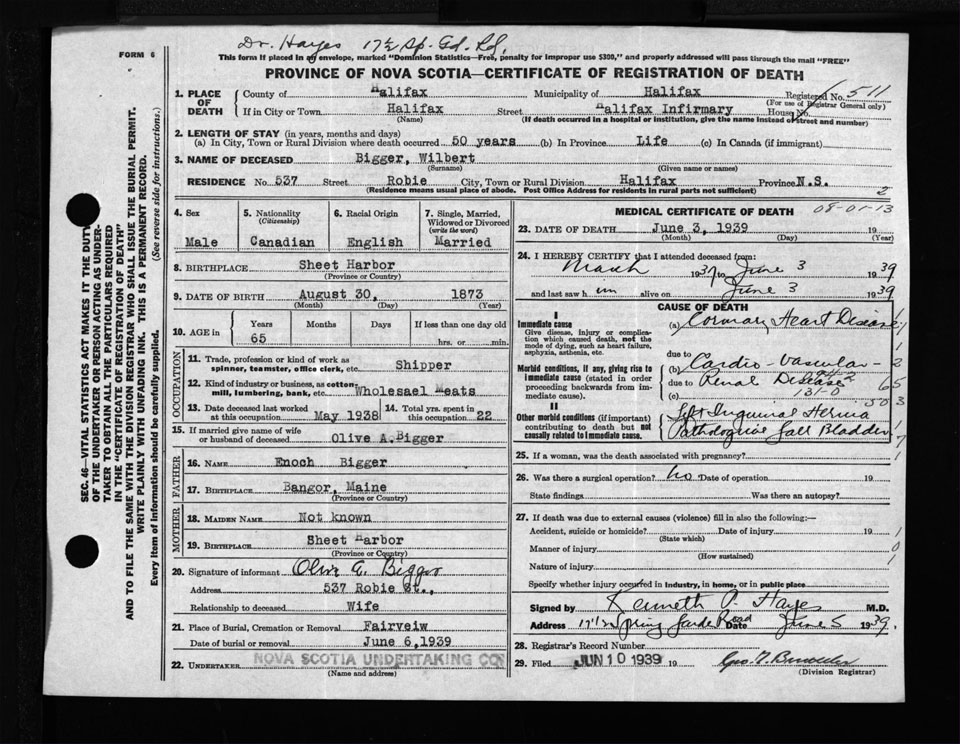 Dr. Hayes 17½ Sp. Gd. Rd.
FORM 6
This form if placed in an envelope, marked "Dominion Statistics—Free, penalty for improper use $300," and properly addressed will pass through the mail "FREE"
PROVINCE OF NOVA SCOTIA—CERTIFICATE OF REGISTRATION OF DEATH
SEC. 46—VITAL STATISTICS ACT MAKES IT THE DUTY
OF THE UNDERTAKER OR PERSON ACTING AS UNDER-
TAKER TO OBTAIN ALL THE PARTICULARS REQUIRED
IN THE "CERTIFICATE OF REGISTRATION OF DEATH"
AND TO FILE THE SAME WITH THE DIVISION REGISTRAR WHO SHALL ISSUE THE BURIAL PERMIT.
WRITE PLAINLY WITH UNFADING INK. THIS IS A PERMANENT RECORD.
Every item of information should be carefully supplied. (See reverse side for instructions.)
1. PLACE OF DEATH County of Halifax Municipality of Halifax Registered No. 511
(For use of Registrar General only)
If in City or Town Halifax Street Halifax Infirmary House No.
(Name) (If death occurred in a hospital or institution, give the name instead of street and number)
2. LENGTH OF STAY (in years, months and days)
(a) In City, Town or Rural Division where death occurred 50 years (b) In Province Life (c) In Canada (if immigrant)
3. NAME OF DECEASED Bigger, Wilbert
(Surname) (Given name or names)
RESIDENCE No. 537 Street Robie City, Town or Rural Division Halifax Province N.S.
(Residence means usual place of abode. Post Office Address for residents in rural parts not sufficient) 2
4. Sex
Male
5. Nationality
(Citizenship)
Canadian
6. Racial Origin
English
7. Single, Married,
Widowed or Divorced
(write the word)
Married
8. BIRTHPLACE Sheet Harbor
(Province or Country)
9. DATE OF BIRTH August 30, 1873
(Month) (Day) (Year)
10. AGE in Years Months Days If less than one day old
65 hrs. or min.
OCCUPATION
11. Trade, profession or kind of work as
spinner, teamster, office clerk, etc. Shipper
12. Kind of industry or business, as cotton
mill, lumbering, bank, etc. Wholesael Meats
13. Date deceased last worked
at this occupation May 1938
14. Total yrs. spent in
this occupation 22
15. If married give name of wife
or husband of deceased Olive A.Bigger
FATHER
16. NAME Enoch Bigger
17. BIRTHPLACE Bangor, Maine
(Province or Country)
MOTHER
18. MAIDEN NAME Not known
19. BIRTHPLACE Sheet Harbor
(Province or Country)
20. Signature of informant Olive A. Bigger
Address 537 Robie St.,
Relationship to deceased Wife
21. Place of Burial, Cremation or Removal Fairveiw
Date of burial or removal June 6,1939
22. UNDERTAKER NOVA SCOTIA UNDERTAKING CO
(Name and address)
MEDICAL CERTIFICATE OF DEATH 08-01-13
23. DATE OF DEATH June 3, 1939 19
(Month) (Day) (Year)
24. I HEREBY CERTIFY that I attended deceased from:
March 1937 to June 3 1939
and last saw him alive on June 3 1939
CAUSE OF DEATH
I
Immediate cause
Give disease, injury or complica-
tion which caused death, not the
mode of dying, such as heart failure,
asphyxia, asthenia, etc.
(a) Coronary Heart Disease
due to
Morbid conditions, if any, giving rise to
immediate cause (stated in order
proceeding backwards from im-
mediate cause).
(b) Cardio-Vascular-
due to Renal Disease
131-0
(c)
II
Other morbid conditions (if important)
contributing to death but not
causally related to immediate cause.
Left Inguinal Hernia
Pathological Gall Bladder
25. If a woman, was the death associated with pregnancy?
26. Was there a surgical operation? no Date of operation 19
State findings Was there an autopsy?
27. If death was due to external causes (violence) fill in also the following:—
Accident, suicide or homicide? Date of injury 19
(State which)
Manner of injury
(How sustained)
Nature of injury
Specify whether injury occurred in industry, in home, or in public place
Signed by Kenneth P. Hayes M.D.
Address 17½ Spring Garden Road Date June 5 1939
28. Registrar's Record Number
29. Filed JUN 10 1939 19
(Division Registrar)